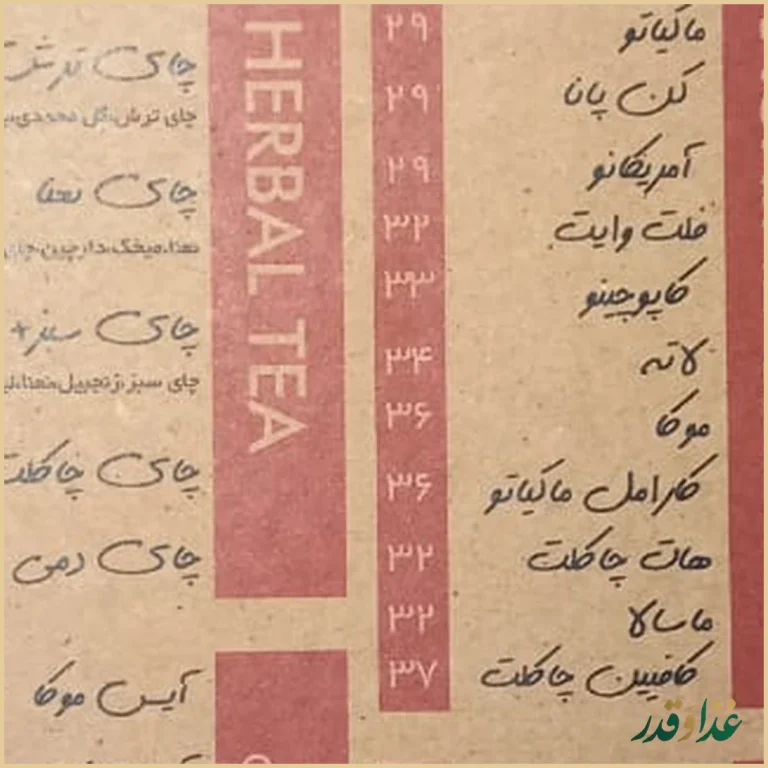 ماکیاتو ۲۹
کن پانا ۲۹
آمریکانو ۲۹
فلت وایت ۳۲
کاپوچینو ۳۳
لاته ۳۴
موکا ۳۶
کارامل ماکیاتو ۳۶
هات چاکلت ۳۲
ماسالا ۳۲
کافیین چاکلت ۳۷
HERBAL TEA
چای ترش
چای ترش،گل محمدی،
چای نعنا
نعنا،میخک،دارچین،چای
چای سبز+
چای سبز،زنجبیل،نعنا،
چای چاکلت
چای دمی
آیس موکا
غذا و قدر